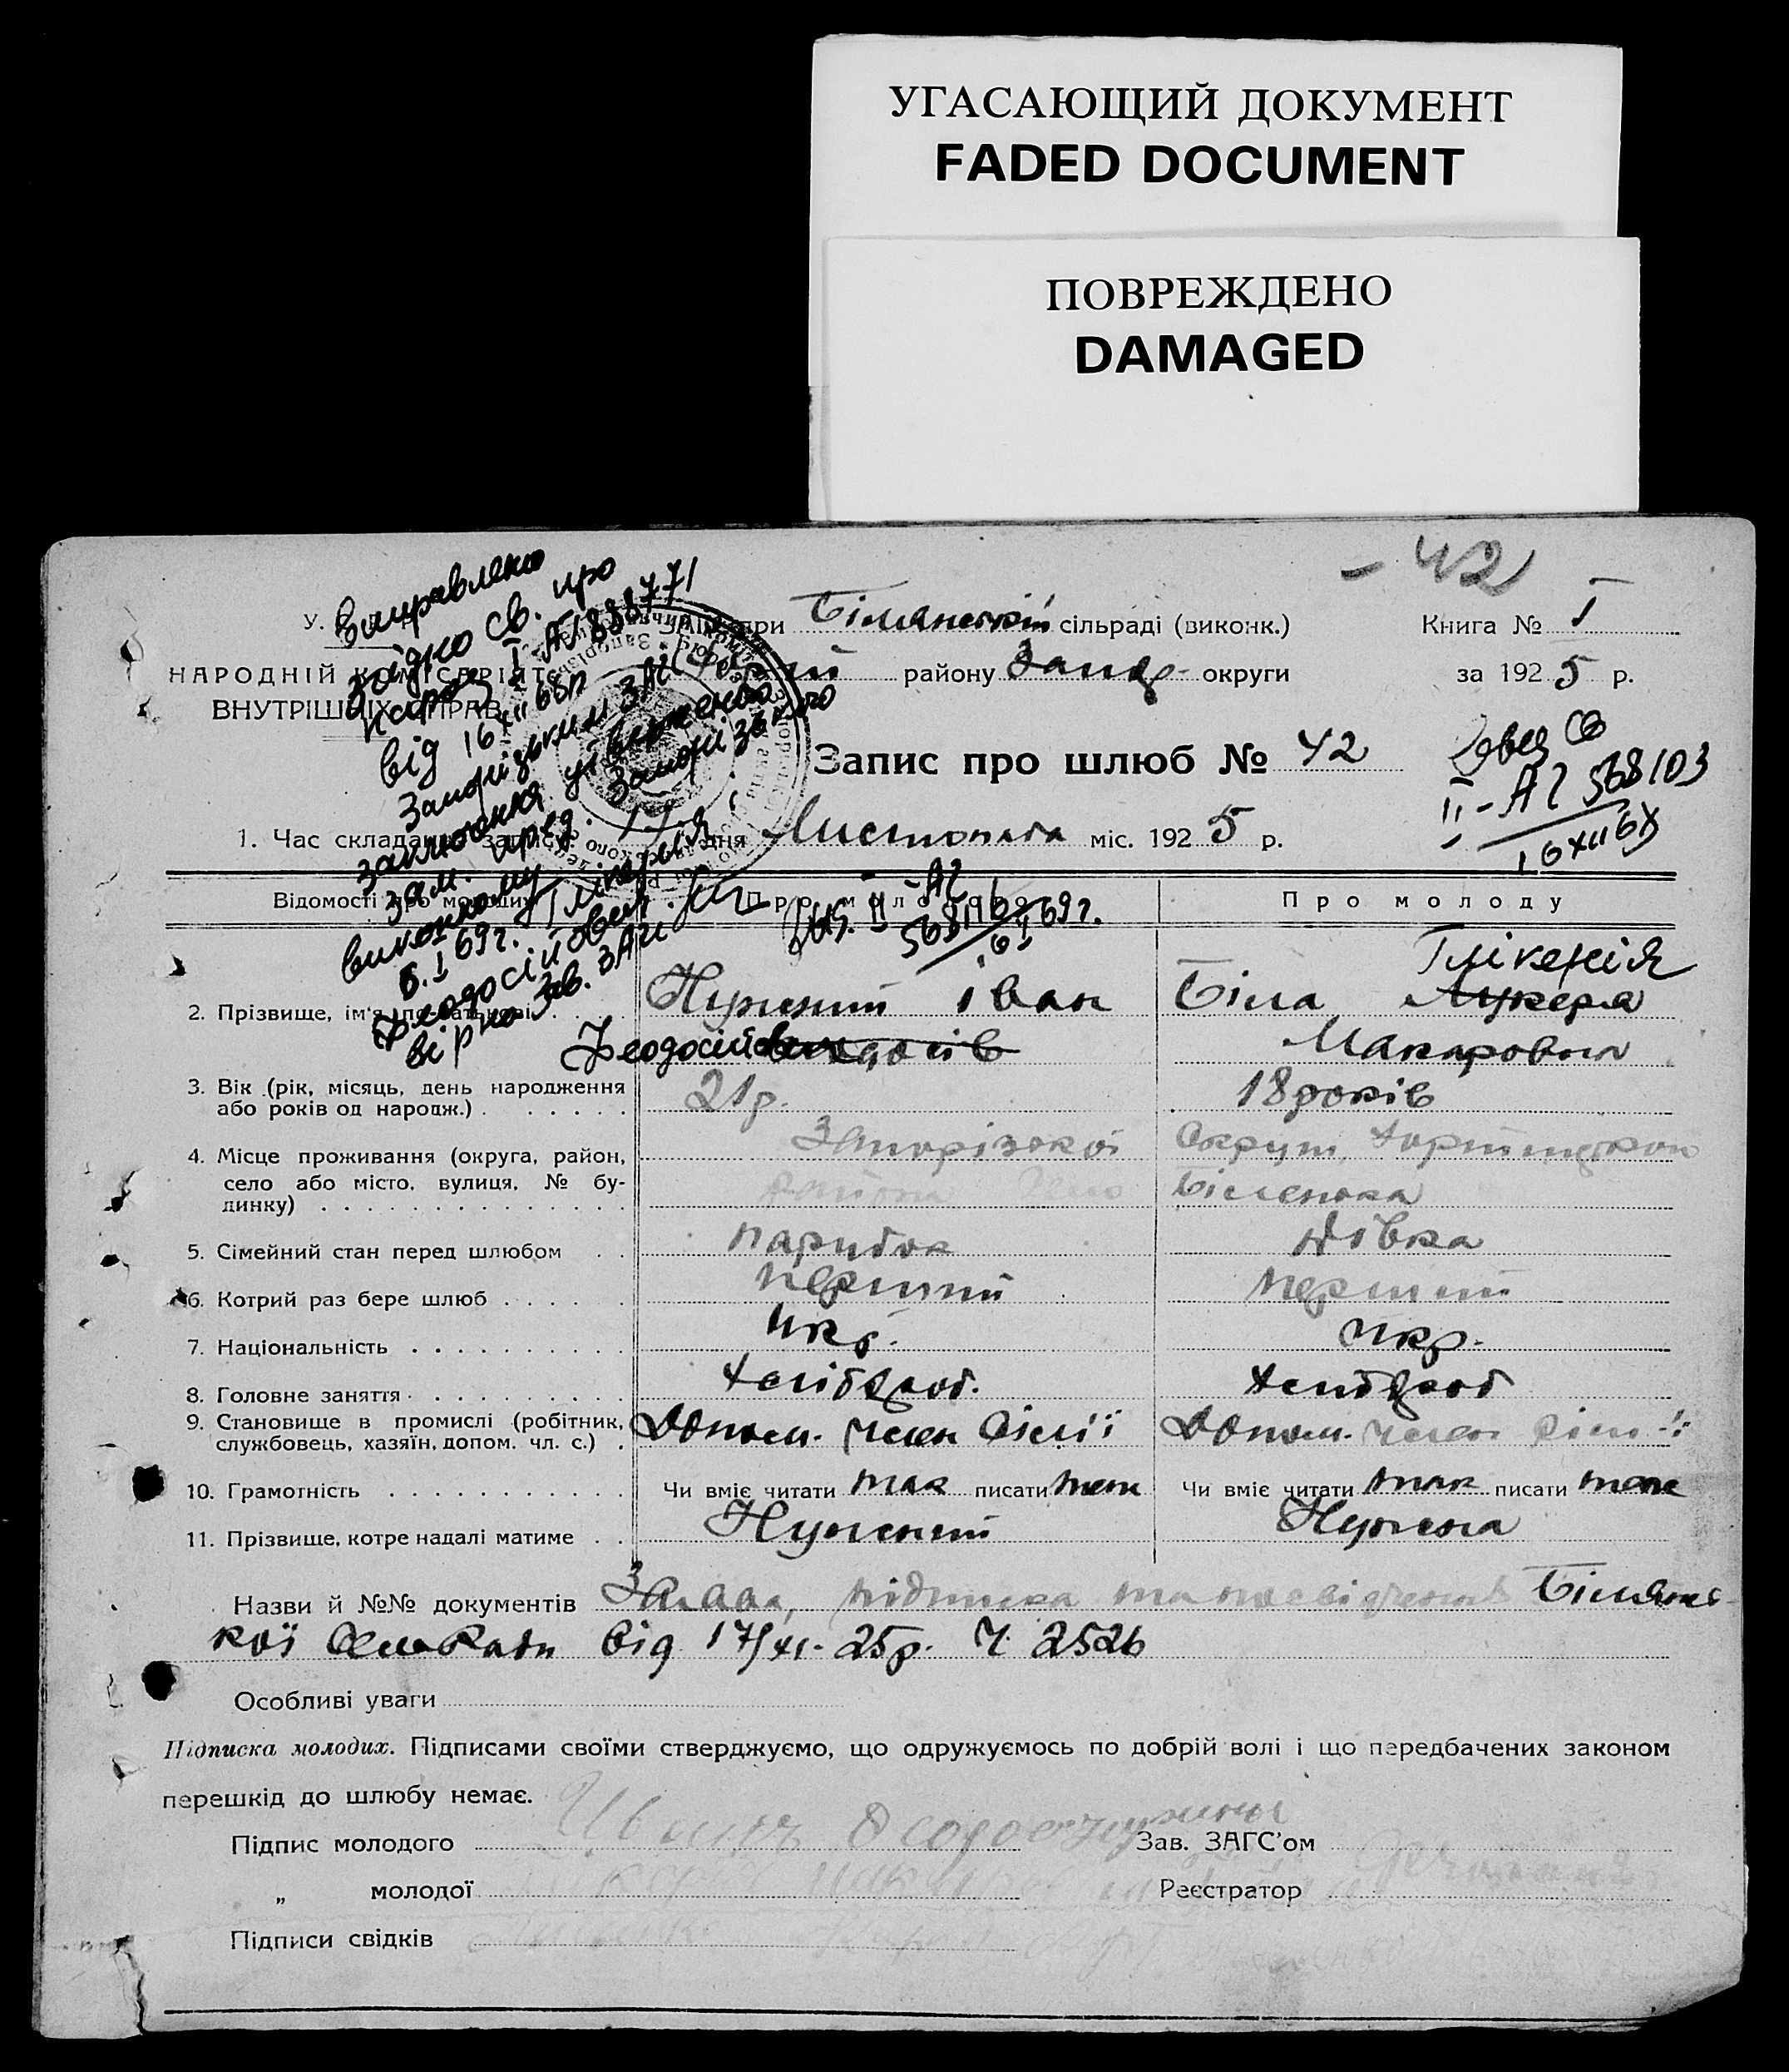 УГАСАЮЩИЙ ДОКУМЕНТ
FADED DOCUMENT
ПОВРЕЖДЕНО
DAMAGED
- 42
У.
при Білянській сільраді (виконк.)
Книга № I
НАРОДНІЙ КОМІСАРІЯТ
району Запор округи
за 1925 р.
ВНУТРІШНІХ СПРАВ
Виправлено
згідно св. про
народ I-АГ 888771
від 16 XII 68р
Запорізьким
заключення утверждено
зам. пред. Запорізького
виконкому
6.I 69г. Глікерія
Феодосійович
вірно Зав. ЗАГС
Запис про шлюб № 42
II-АГ 568103
16 XII 68
1. Час складання запису 17 дня Листопада міс. 1925 р.
Відомості про молодих
Про молодого
Про молоду
II-АГ
568116
6 I 69г.
Глікерія
2. Прізвище, ім'я, по-батькові
Нужний Іван
Біла Лукеря
Феодосійович
Макаровна
3. Вік (рік, місяць, день народження
або років од народж.)
21р.
18 років
4. Місце проживання (округа, район,
село або місто, вулиця, № бу-
динку)
Запорізької
Округи,
района Село
Біленька
5. Сімейний стан перед шлюбом
парубок
дівка
6. Котрий раз бере шлюб
перший
перший
7. Національність
Укр.
Укр.
8. Головне заняття
хлібороб.
хлібороб
9. Становище в промислі (робітник,
службовець, хазяїн, допом. чл. с.)
Допом. член сім'ї
Допом. член сім'ї
10. Грамотність
Чи вміє читати так писати так
Чи вміє читати так писати так
11. Прізвище, котре надалі матиме
Нужний
Нужна
Назви й №№ документів Заява, підписка та посвідчення Білянсь-
кої Сельради від 17/XI-25р. Ч. 2526
Особливі уваги
Підписка молодих. Підписами своїми стверджуємо, що одружуємось по добрій волі і що передбачених законом
перешкід до шлюбу немає.
Підпис молодого
Зав. ЗАГС'ом
„ молодої
Реєстратор
Підписи свідків